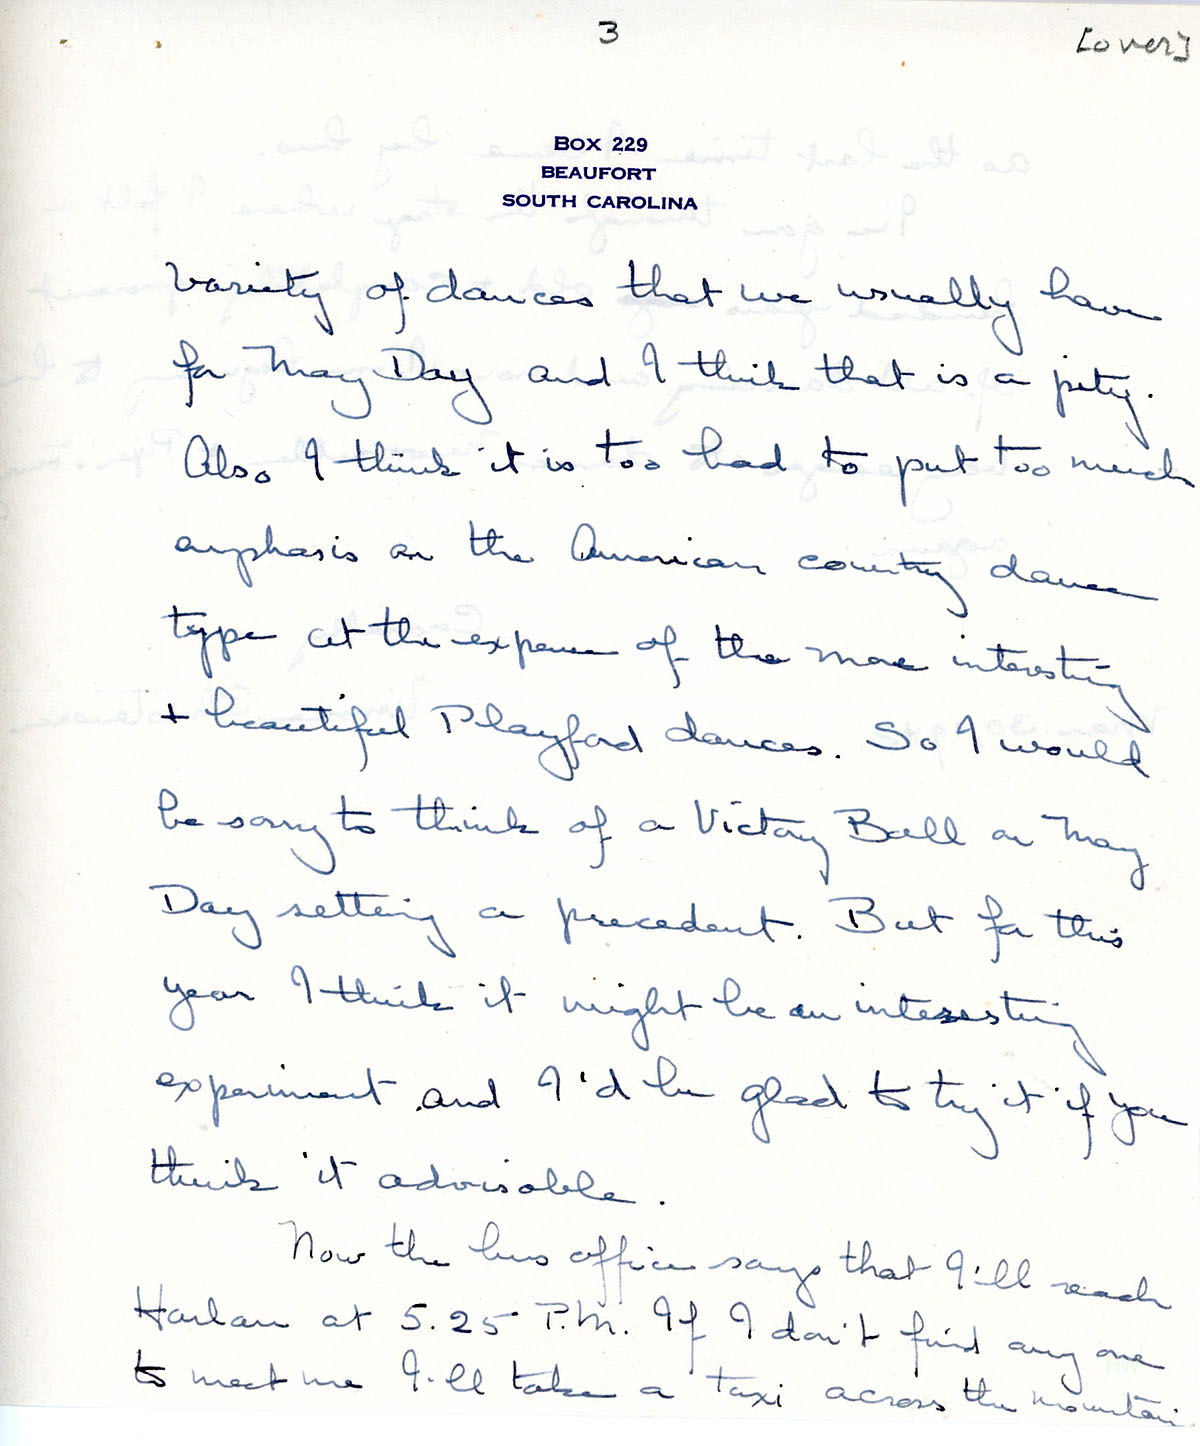 3
[over]
Box 229
BEAUFORT
SOUTH CAROLINA
variety of dances that we usually have
for May Day and I think that is a pity.
Also I think it is too bad to put too much
emphasis on the American country dance
type at the expense of the more interesting
+ beautiful Playford dances. So I would
be sorry to think of a Victory Ball on May
Day setting a precedent. But for this
year I think it might be an interesting
experiment and I'd be glad to try it if you
think it advisable.
Now the bus office says that I'll reach
Harlan at 5.25 P.M. If I don't find any one
to meet me I'll take a taxi across the mountain